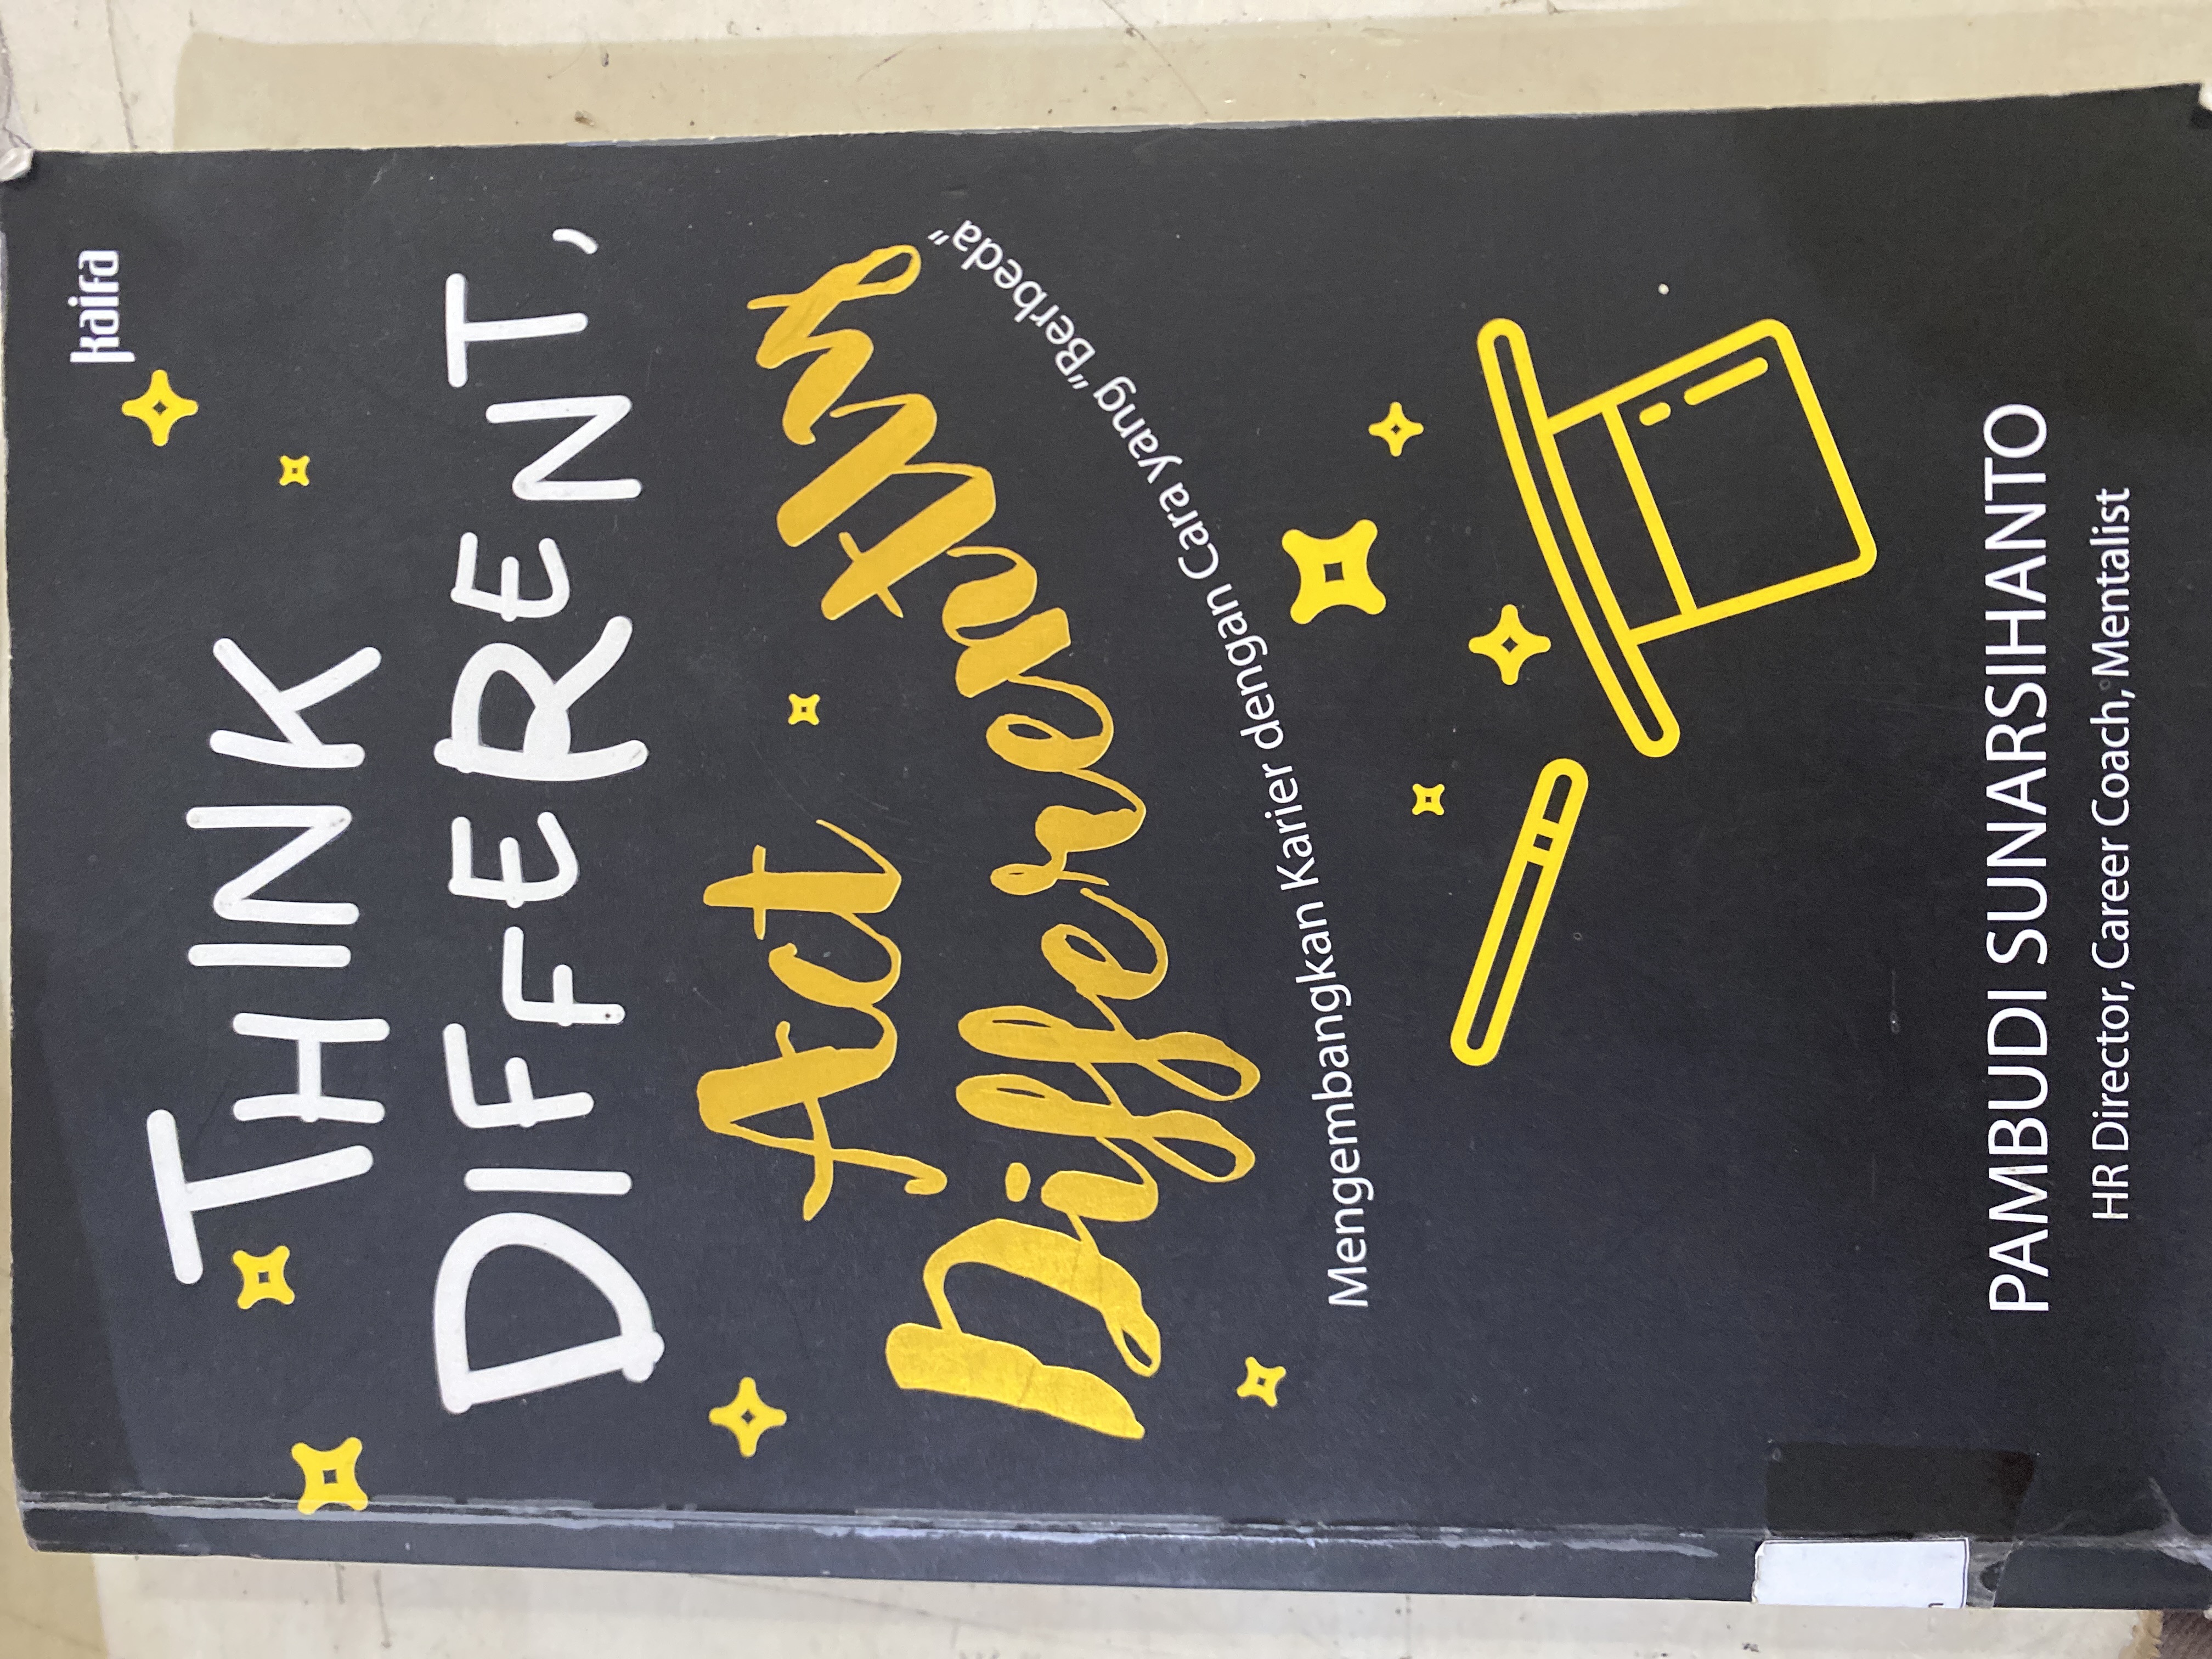 kaifa
THINK
DIFFERENT,
Act
Differently
Mengembangkan Karier dengan Cara yang "Berbeda"
PAMBUDI SUNARSIHANTO
HR Director, Career Coach, Mentalist